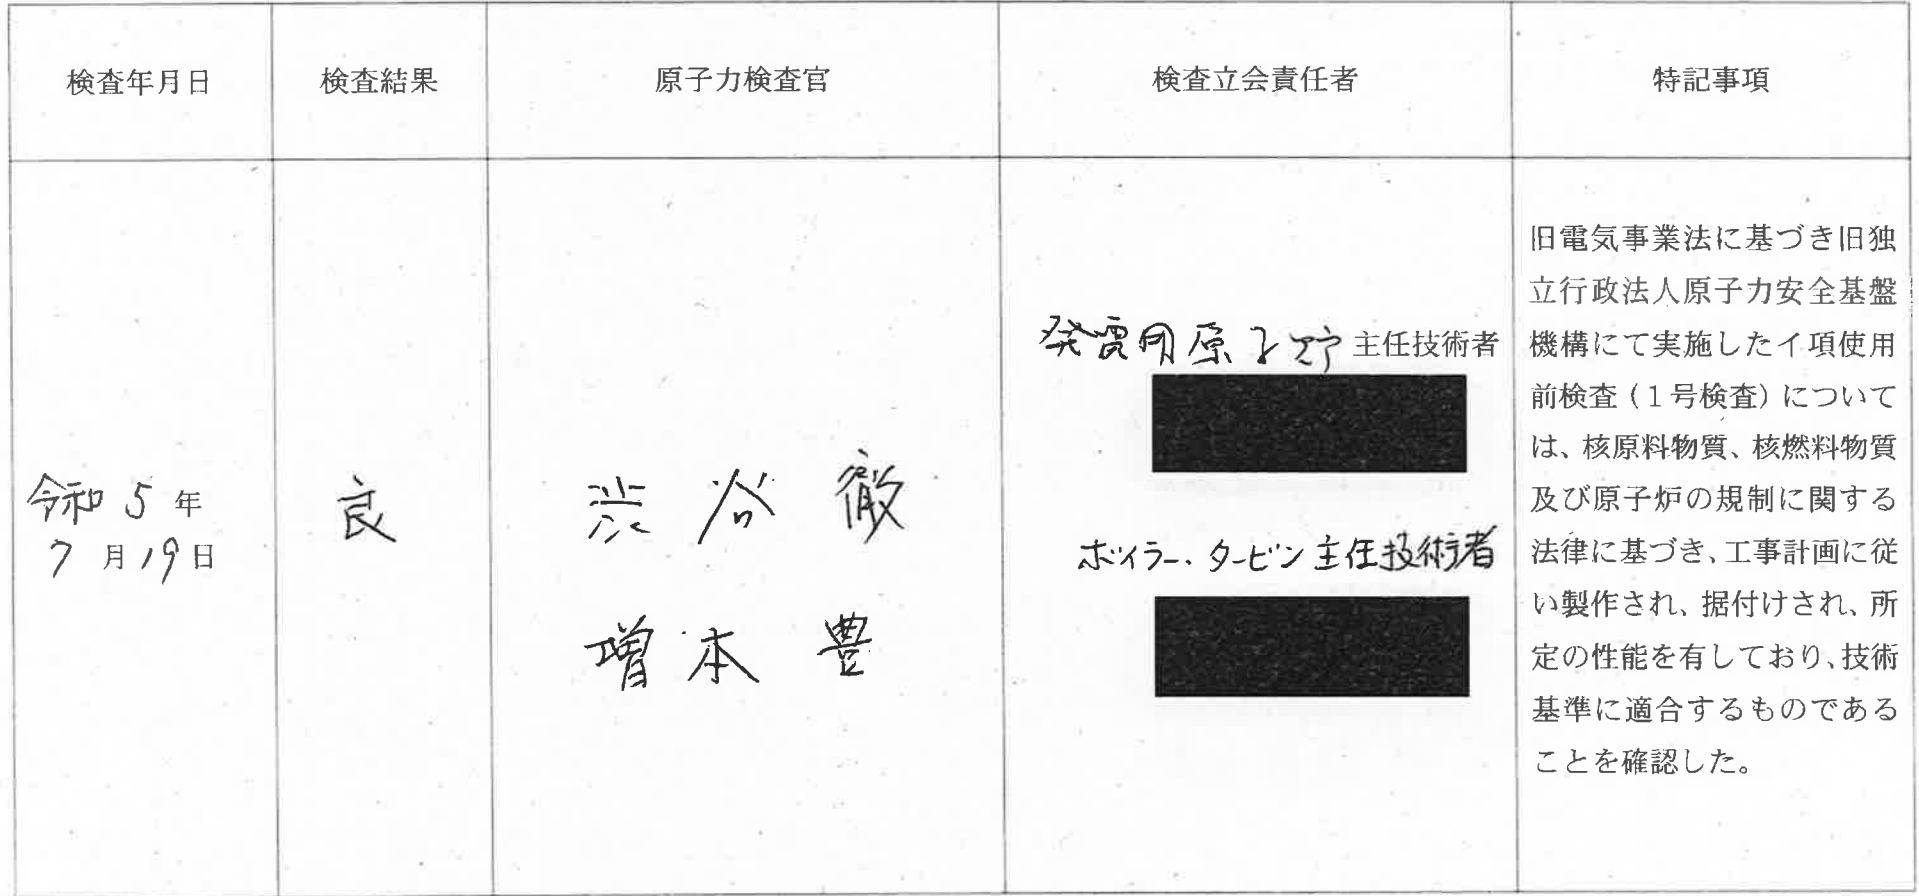 検査年月日
検査結果
原子力検査官
検査立会責任者
特記事項
令和 5 年
7 月 19 日
良
渋谷 徹
増本 豊
発電用原子炉 主任技術者
ボイラー・タービン主任技術者
旧電気事業法に基づき旧独
立行政法人原子力安全基盤
機構にて実施したイ項使用
前検査（１号検査）について
は、核原料物質、核燃料物質
及び原子炉の規制に関する
法律に基づき、工事計画に従
い製作され、据付けされ、所
定の性能を有しており、技術
基準に適合するものである
ことを確認した。